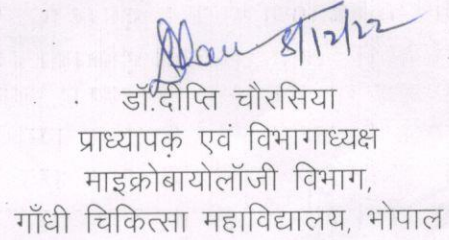 8/12/22
डॉ.दीप्ति चौरसिया
प्राध्यापक एवं विभागाध्यक्ष
माइक्रोबायोलॉजी विभाग,
गाँधी चिकित्सा महाविद्यालय, भोपाल